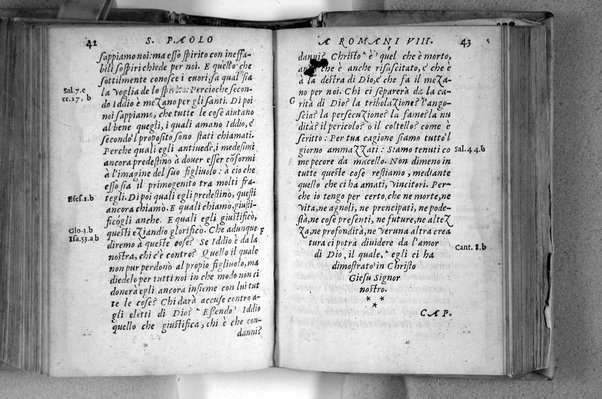 42 S. PAOLO
sappiamo noi: ma esso spirito con ineffa-
bili sospiri chiede per noi. E quello che
sottilmente conosce i cuori sa qual sia
Sal. 7. c
la voglia de lo spirito: Percioche secon-
er. 17. b
do Iddio è mezano per gli santi. Di poi
noi sappiamo, che tutte le cose aiutano
al bene quegli, i quali amano Iddio, e
secondo'l proposito sono stati chiamati.
Perche quali egli antiuedè, i medesimi
ancora predestinò à douer esser cõformi
à l'imagine del suo figliuolo: à cio che
esso sia il primogenito tra molti fra-
Efes. 1. b
tegli. Di poi quali egli predestinò, questi
ancora chiamò. E quali chiamò, giusti-
ficogli anche. E quali egli giustificò,
Gio. 3. b
questi eziandio glorificò. Che adunque
Isa. 53. a b
diremo à queste cose? Se Iddio è da la
nostra, chi c'è contro? Quello il quale
non pur perdonò al propio figliuolo, ma
diedelo per tutti noi in che modo non ci
donerà egli ancora insieme con lui tut
te le cose? Chi darà accuse contro a-
gli eletti di Dio? Essendo Iddio
quello che giustifica, chi è che con-
danni?
A ROMANI VIII. 43
danni? Christo è quel che è morto,
che è anche risuscitato, e che è
à la destra di Dio, e che fa il meza-
no per noi. Chi ci separerà da la ca-
G
rità di Dio? la tribolazione? l'ango-
scia? la persecuzione? la fame? la nu
dità? il pericolo? o il coltello? come è
scritto: Per tua cagione siamo tutto'l
giorno amazzati: Siamo tenuti co
Sal. 44. b
me pecore da macello. Non dimeno in
tutte queste cose restiamo, mediante
quello che ci ha amati, vincitori. Per-
che io tengo per certo, che ne morte, ne
vita, ne agnoli, ne prencipati, ne pode-
stà, ne cose presenti, ne future, ne altez
za, ne profondità, ne veruna altra crea
tura ci potrà diuidere da l'amor
Cant. 8. b
di Dio, il quale, egli ci ha
dimostrato in Christo
Giesu Signor
nostro.
* *
*
CAP.